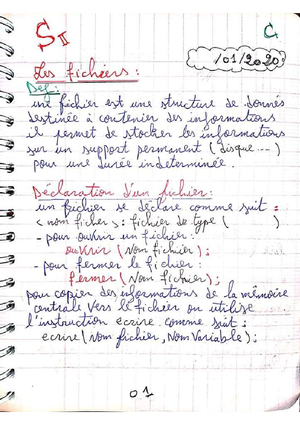 SII
C
/01/2020
Les fichiers :
Def :
une fichier est une structure de donnés
destinée à contenier des informations
il permet de stocker les informations
sur un support permanent (disque ...)
pour une durée indeterminée.
Déclaration d'un fichier :
un fichier se déclare comme suit :
< nom ficher > : fichier de type ( )
- pour ouvrir un fichier :
ouvrir (Nom fichier) ;
- pour fermer le fichier :
fermer (Nom fichier) ;
pour copier des informations de la mémoire
centrale vers le fichier on utilise
l'instruction ecrire comme suit :
ecrire (Nom fichier, Nom Variable) ;
01